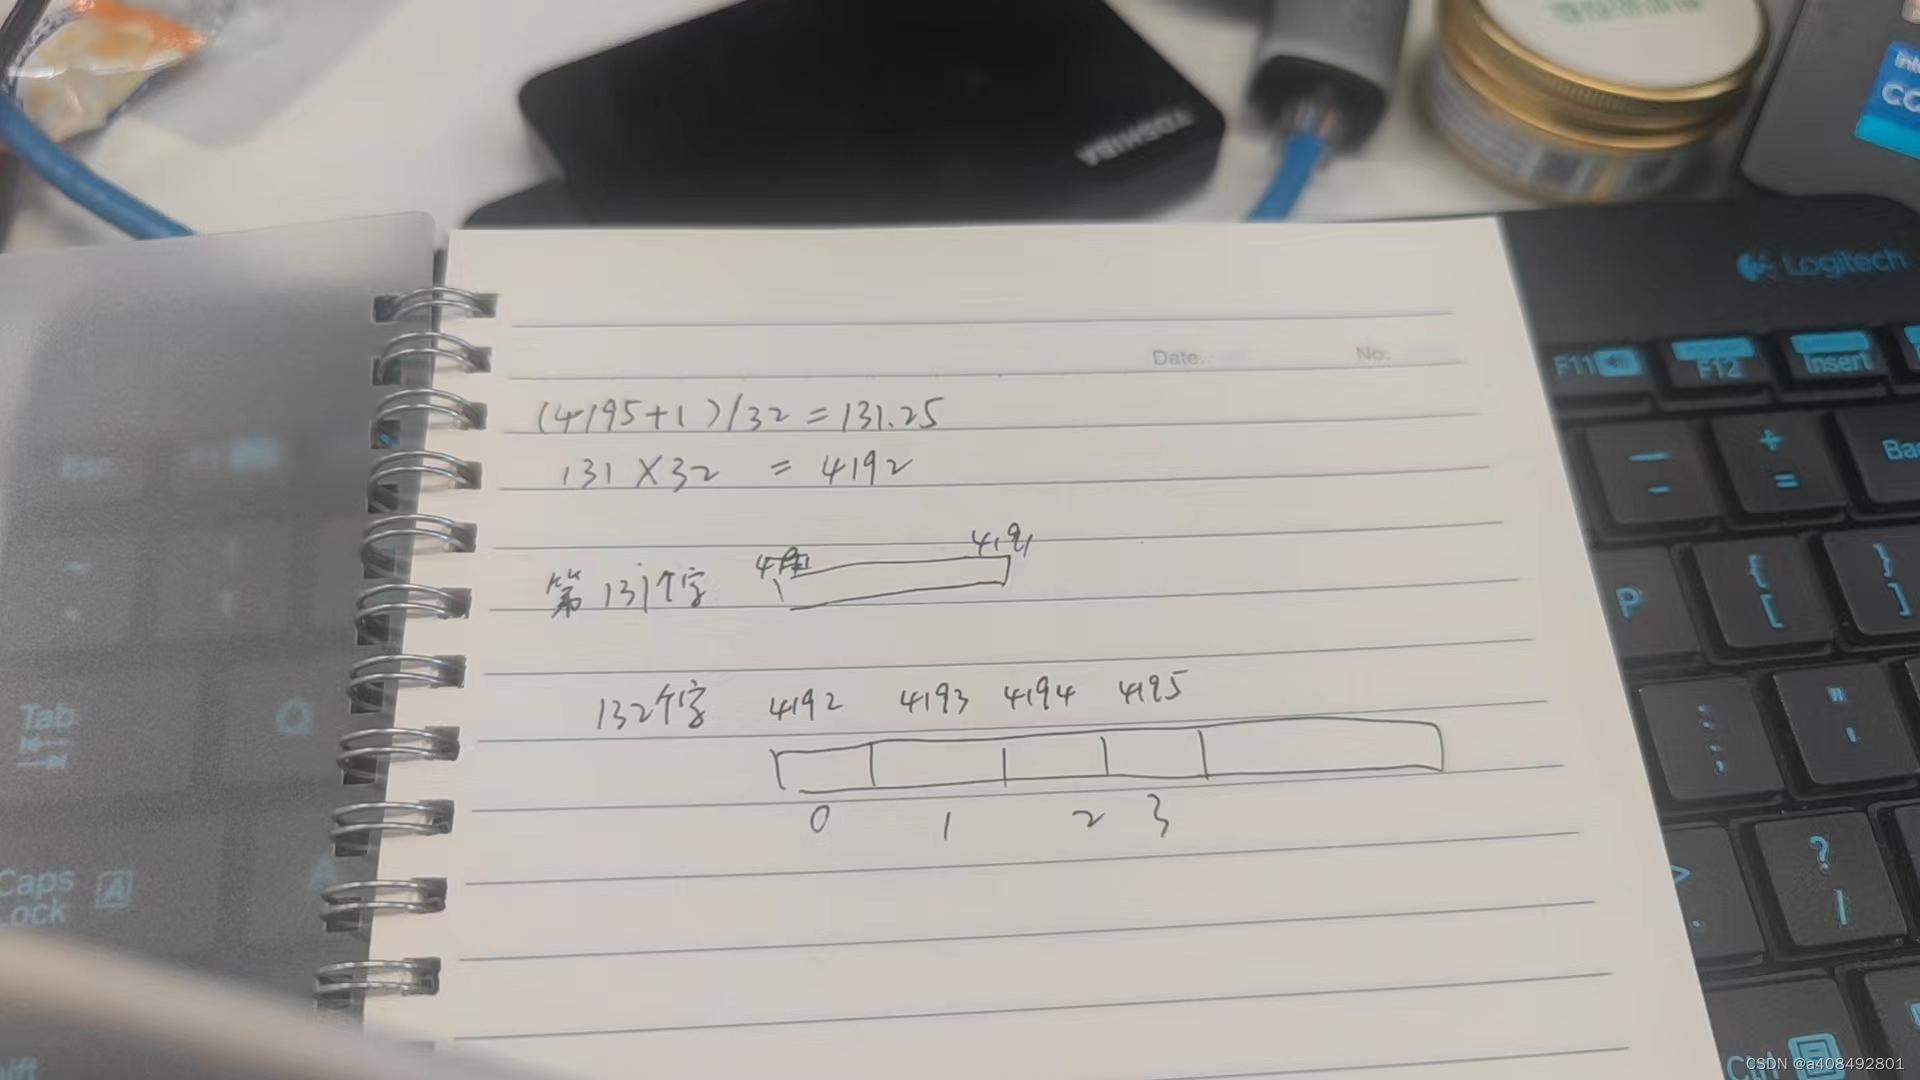 TOSHIBA
Logitech
Date.
No.
F11
F12
Insert
(4195+1)/32 = 131.25
131 × 32 = 4192
4191
第 131个字
132个字 4192 4193 4194 4195
0 1 2 3
+
=
P
{
[
}
]
Tab
Q
Caps
Lock
A
?
/
Ctrl
CSDN @a408492801